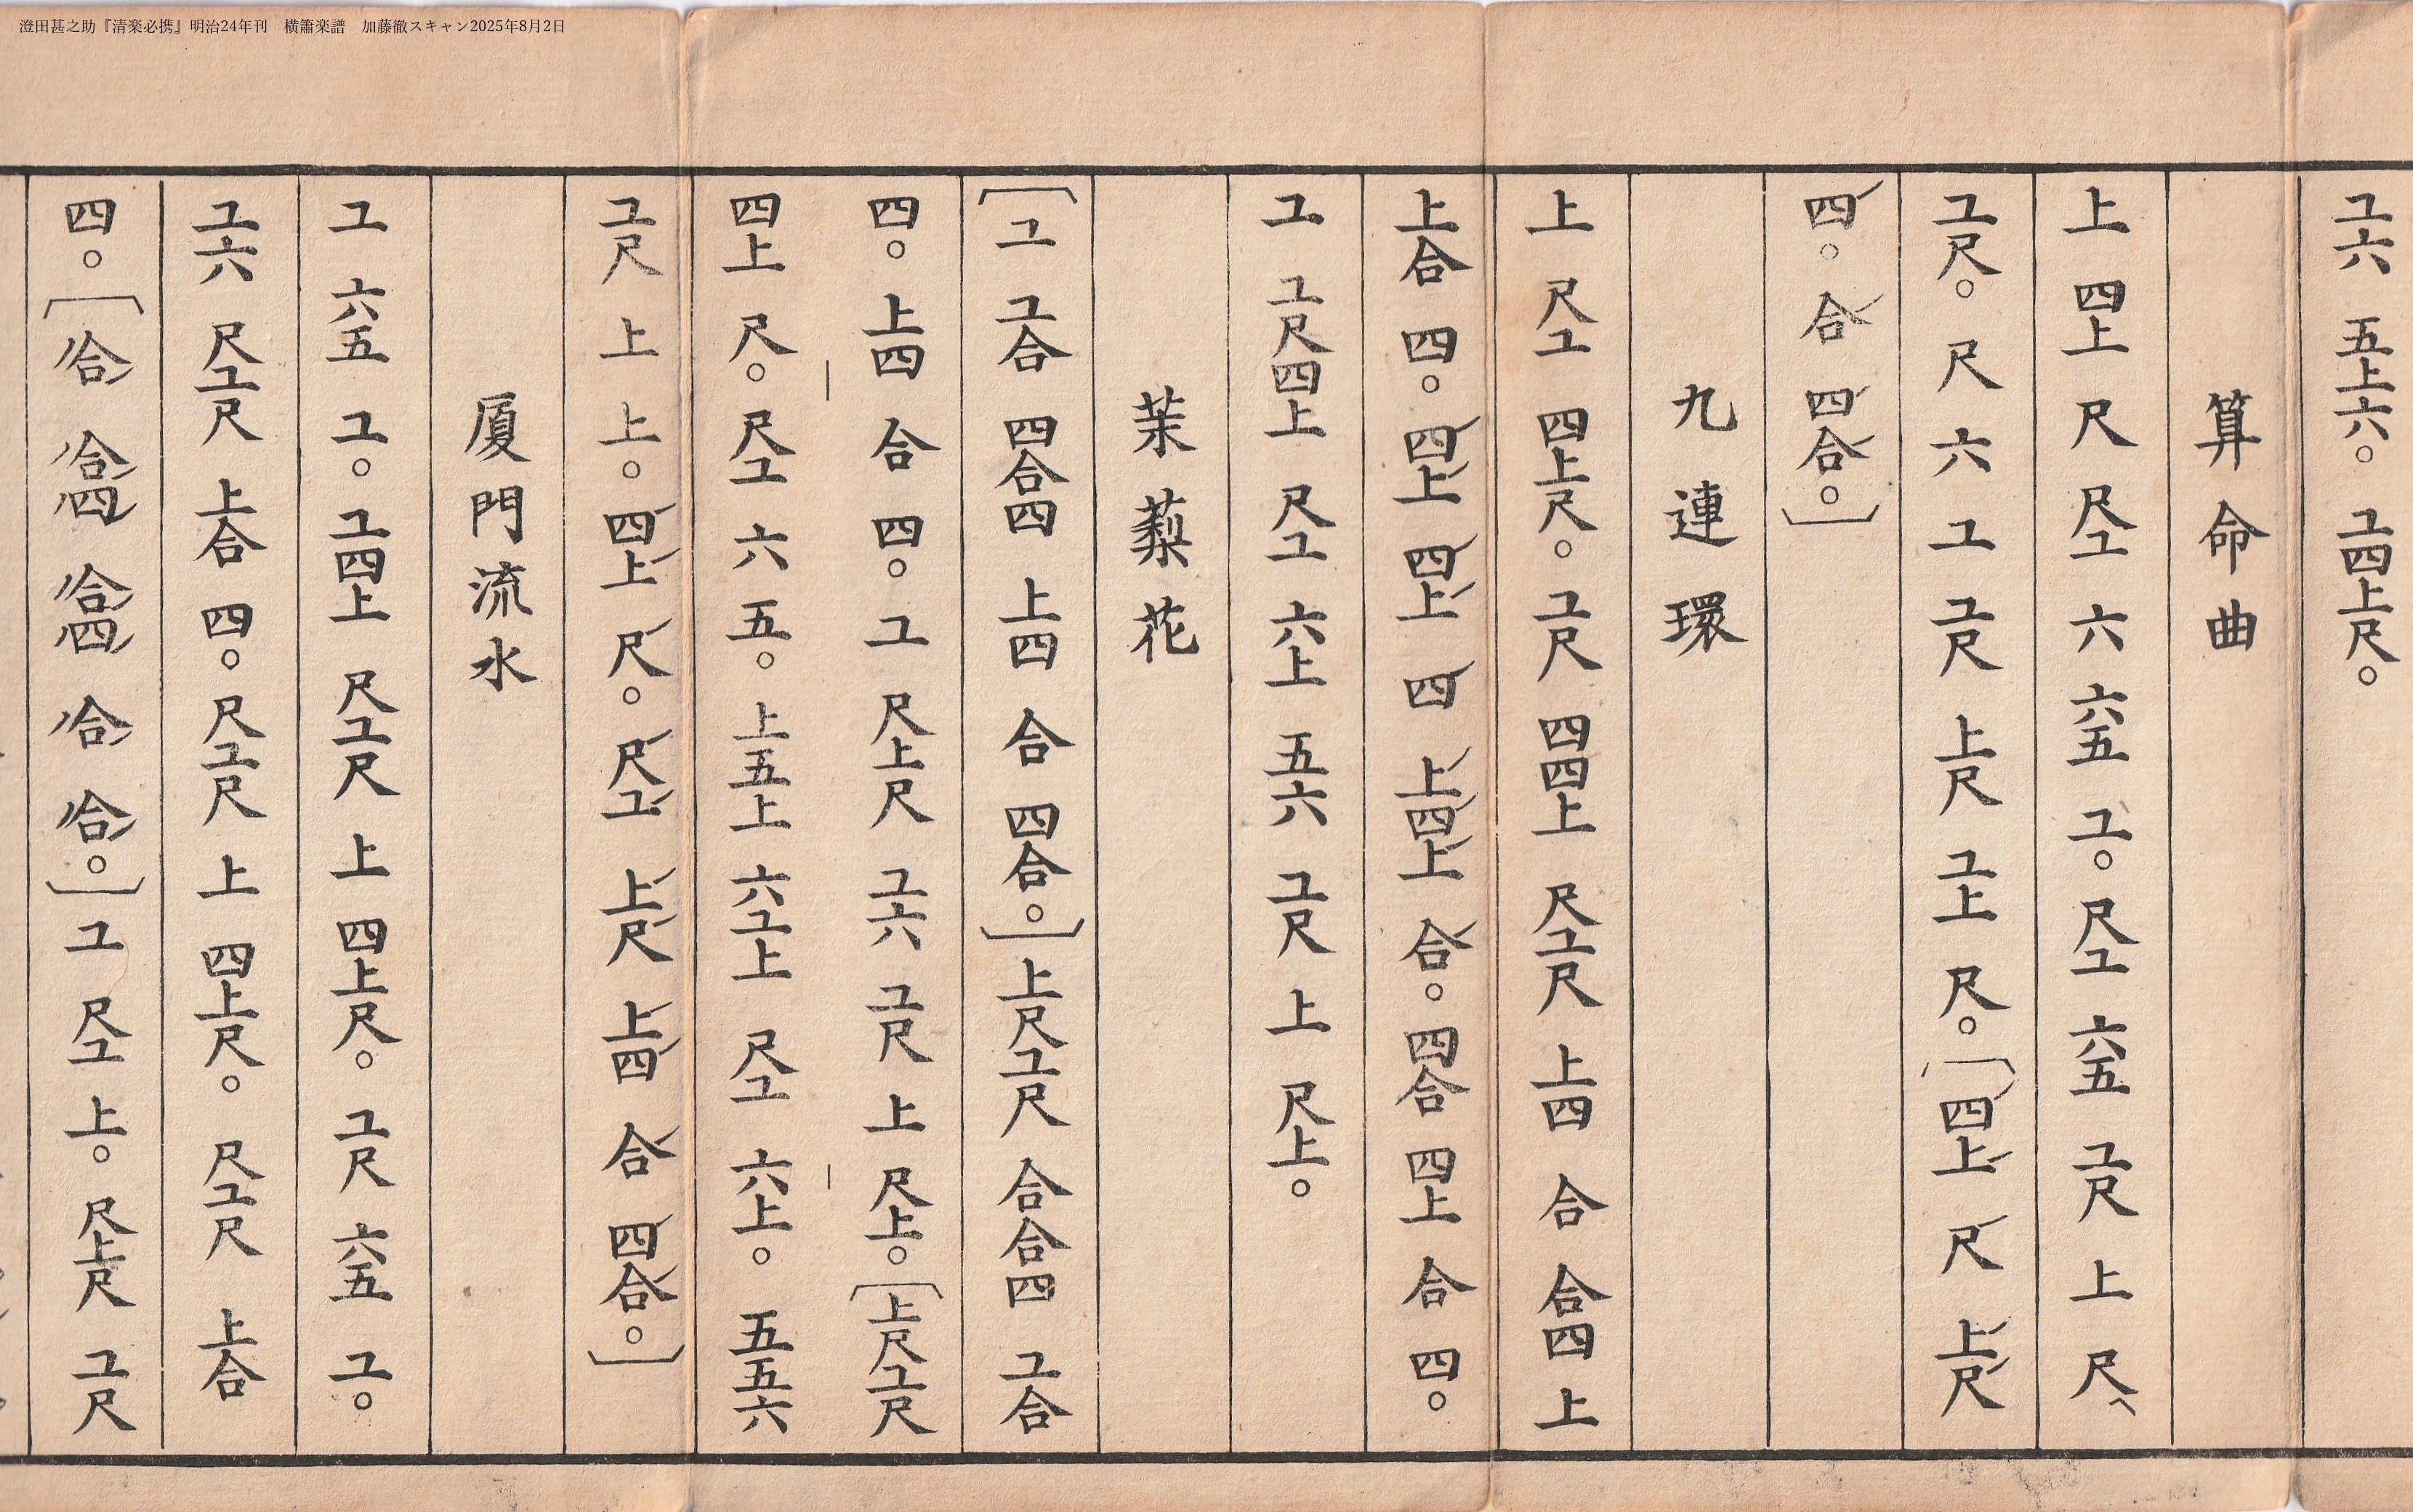 澄田甚之助『清楽必携』明治24年刊　横簫楽譜　加藤徹スキャン2025年8月2日
工六 五上六。工四上尺。
算命曲
上 四上 尺 尺工 六 六五 工。尺工 六五 工尺 上 尺、
工尺。尺 六 工 工尺 上尺 工上 尺。〔四上 尺 上尺
四。合 四合。〕
九連環
上 尺工 四上尺。工尺 四四上 尺工尺 上四 合 合四 上
上合 四。四上 四上 四 上四上 合。四合 四上 合 四。
工 工尺四上 尺工 六上 五六 工尺 上 尺上。
茉藜花
〔工 工合 四合四 上四 合 四合。〕上尺工尺 合合四 工合
四。上四 合 四。工 尺上尺 工六 工尺 上 尺上。〔上尺工尺
四上 尺。尺工 六 五。上五上 六工上 尺工 六上。五五六
工尺 上 上。四上 尺。尺工 上尺 上四 合 四合。〕
厦門流水
工 六五 工。工四上 尺工尺 上 四上尺。工尺 六五 工。
工六 尺工尺 上合 四。尺工尺 上 四上尺。尺工尺 上合
四。〔合 合四 合四 合 合。〕工 尺工 上。尺上尺 工尺